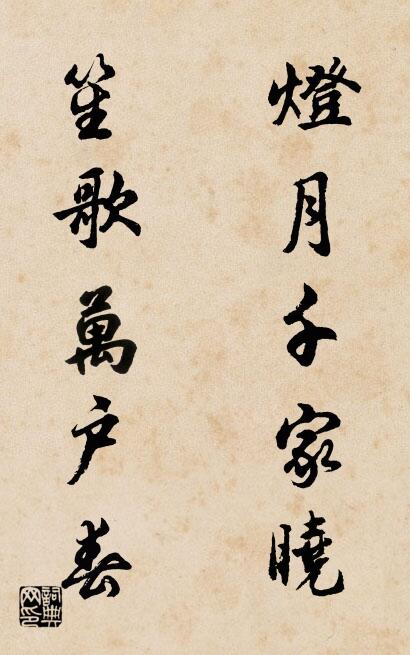 燈月千家曉
笙歌萬户春
詞典網印